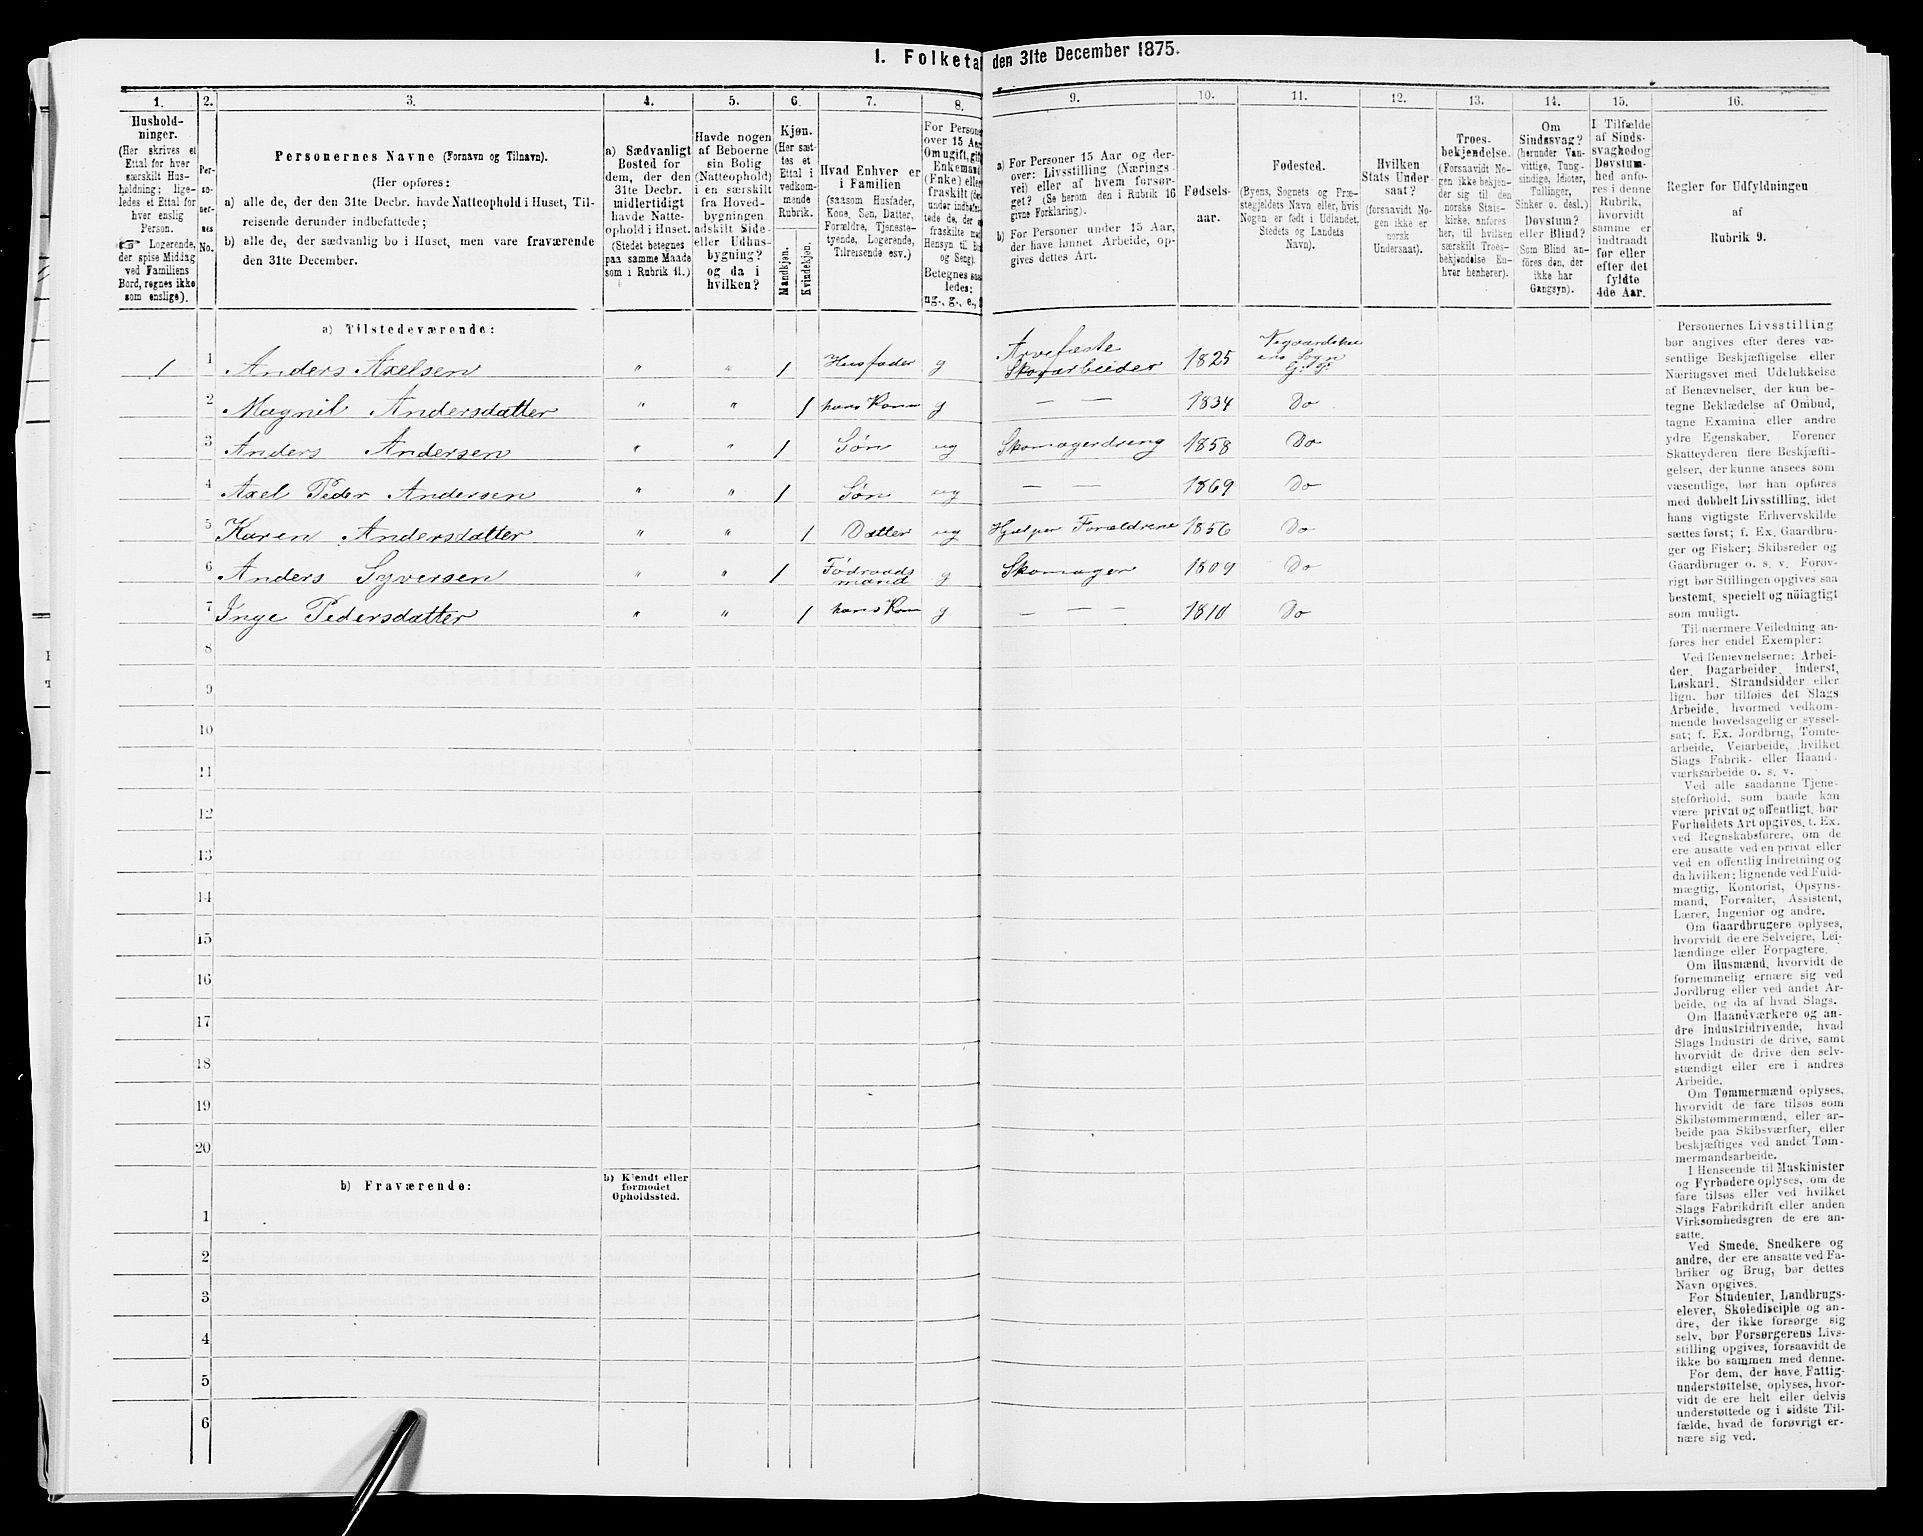 I. Folketal den 31te December 1875.
1. 2. 3. 4. 5. 6. 7. 8. 9. 10. 11. 12. 13. 14. 15. 16.
Hushold-
ninger.
(Her skrives et
Ettal for hver
særskilt Hus-
holdning; lige-
ledes et Ettal for
hver enslig
Person.
☞ Logerende,
der spise Middag
ved Familiens
Bord, regnes ikke
som enslige).
Per-
so-
ner-
nes
No.
Personernes Navne (Fornavn og Tilnavn).
(Her opføres:
a) alle de, der den 31te Decbr. havde Natteophold i Huset, Til-
reisende derunder indbefattede;
b) alle de, der sædvanlig bo i Huset, men vare fraværende
den 31te December.
a) Sædvanligt
Bosted for
dem, der den
31te Decbr.
midlertidigt
havde Natte-
ophold i Huset.
(Stedet betegnes
paa samme Maade
som i Rubrik 11.)
Havde nogen
af Beboerne
sin Bolig
(Natteophold)
i en særskilt
fra Hoved-
bygningen
adskilt Side-
eller Udhus-
bygning?
og da i
hvilken?
Kjøn.
(Her sæt-
tes et
Ettal i
vedkom-
mende
Rubrik.
Mandkjøn.
Kvindekjøn.
Hvad Enhver er
i Familien
(saasom Husfader,
Kone, Søn, Datter,
Forældre, Tjeneste-
tyende, Logerende,
Tilreisende osv.)
For Persone
over 15 Aa
Om ugift, gif
Enkemand
(Enke) elle
fraskilt
og Seng).
Betegnes saa
ledes:
ug., g., e.,
a) For Personer 15 Aar og der-
over: Livsstilling (Nærings-
vei) eller af hvem forsør-
get? (Se herom den i Rubrik 16
givne Forklaring).
b) For Personer under 15 Aar,
der have lønnet Arbeide, op-
gives dettes Art.
Fødsels-
aar.
Fødested.
(Byens, Sognets og Præ-
stegjeldets Navn eller, hvis
Nogen er født i Udlandet,
Stedets og Landets
Navn).
Hvilken
Stats Under-
saat?
(forsaavidt No-
gen ikke er
norsk
Undersaat).
Troes-
bekjendelse.
(Forsaavidt No-
gen ikke bekjen-
der sig til den
norske Stats-
kirke, anføres
her, til hvilken
særskilt Troes-
bekjendelse En-
hver henhører).
Om
Sindssvag?
(herunder Van-
vittige, Tung-
sindige, Idioter,
Tullinger,
Sinker o. desl.)
Døvstum?
eller Blind?
(Som Blind an-
føres den, der
ikke har
Gangsyn).
I Tilfælde
af Sinds-
svaghed og
Døvstum-
hed anfø-
res i denne
Rubrik,
hvorvidt
samme er
indtraadt
før eller
efter det
fyldte
4de Aar.
Regler for Udfyldningen
af
Rubrik 9.
a) Tilstedeværende:
1 1 Anders Axelsen " " 1 Husfader g Arvefæste Skoarbeider 1825 Sogn
2 Magnil Andersdatter " " 1 hans Kone g — — 1834 Do
3 Anders Andersen " " 1 Søn ug Skomagerdreng 1858 Do
4 Axel Peder Andersen " " 1 Søn ug — — 1869 Do
5 Karen Andersdatter " " 1 Datter ug Hjælper Forældrene 1856 Do
6 Anders Syversen " " 1 Födraads mand g Skomager 1809 Do
7 Inge Pedersdatter " " 1 hans Kone g — — — 1810 Do
8
9
10
11
12
13
14
15
16
17
18
19
20
b) Fraværende:
b) Kjendt eller
formodet
Opholdssted.
1
2
3
4
5
6
Personernes Livsstilling
bør angives efter deres væ-
sentlige Beskjæftigelse eller
Næringsvei med Udelukkelse
af Benævnelser, der kun be-
tegne Beklædelse af Ombud,
tagne Examina eller andre
ydre Egenskaber. Forener
Skatteyderen flere Beskjæfti-
gelser, der kunne ansees som
væsentlige, bør han opføres
med dobbelt Livsstilling, idet
hans vigtigste Erhvervskilde
sættes først; f. Ex. Gaardbru-
ger og Fisker; Skibsreder og
Gaardbruger o. s. v. Forøv-
rigt bør Stillingen opgives saa
bestemt, specielt og nöiagtigt
som muligt.
Til nærmere Veiledning an-
føres her endel Exempler:
Ved Benævnelserne: Arbei-
der, Dagarbeider, Inderst,
Løskarl, Strandsidder eller
lign. bør tilføies det Slags
Arbeide, hvormed vedkom-
mende hovedsagelig er syssel-
sat; f. Ex. Jordbrug, Tomte-
arbeide, Veiarbeide, hvilket
Slags Fabrik- eller Haand-
værksarbeide o. s. v.
Ved alle saadanne Tjene-
steforhold, som baade kan
være privat og offentligt, bør
Forholdets Art opgives, f. Ex.
ved Regnskabsførere, om de
ere ansatte ved en privat eller
ved en offentlig Indretning og
da hvilken; lignende ved Fuld-
mægtig, Kontorist, Opsyns-
mand, Forvalter, Assistent,
Lærer, Ingeniør og andre.
Om Gaardbrugere oplyses,
hvorvidt de ere Selveiere, Lei-
lændinge eller Forpagtere.
Om Husmænd, hvorvidt de
fornemmelig ernære sig ved
Jordbrug eller ved andet Ar-
beide, og da af hvad Slags.
Om Haandværkere og an-
dre Industridrivende, hvad
Slags Industri de drive, samt
hvorvidt de drive den selv-
stændigt eller ere i andres
Arbeide.
Om Tømmermænd oplyses,
hvorvidt de fare tilsøs som
Skibstømmermænd, eller ar-
beide paa Skibsværfter, eller
beskjæftiges ved andet Tøm-
mermandsarbeide.
I Henseende til Maskinister
og Fyrbødere oplyses, om de
fare tilsøs eller ved hvilket
Slags Fabrikdrift eller anden
Virksomhedsgren de ere an-
satte.
Ved Smede, Snedkere og
andre, der ere ansatte ved Fa-
briker og Brug, bør dettes
Navn opgives.
For Studenter, Landbrugs-
elever, Skoledisciple og an-
dre, der ikke forsørge sig
selv, bør Forsørgerens Livs-
stilling opgives, forsaavidt de
ikke bo sammen med denne.
For dem, der have Fattig-
understøttelse, oplyses, hvor-
vidt de ere helt eller delvis
understøttede og i sidste Til-
fælde, hvad de forøvrigt er-
nære sig ved.